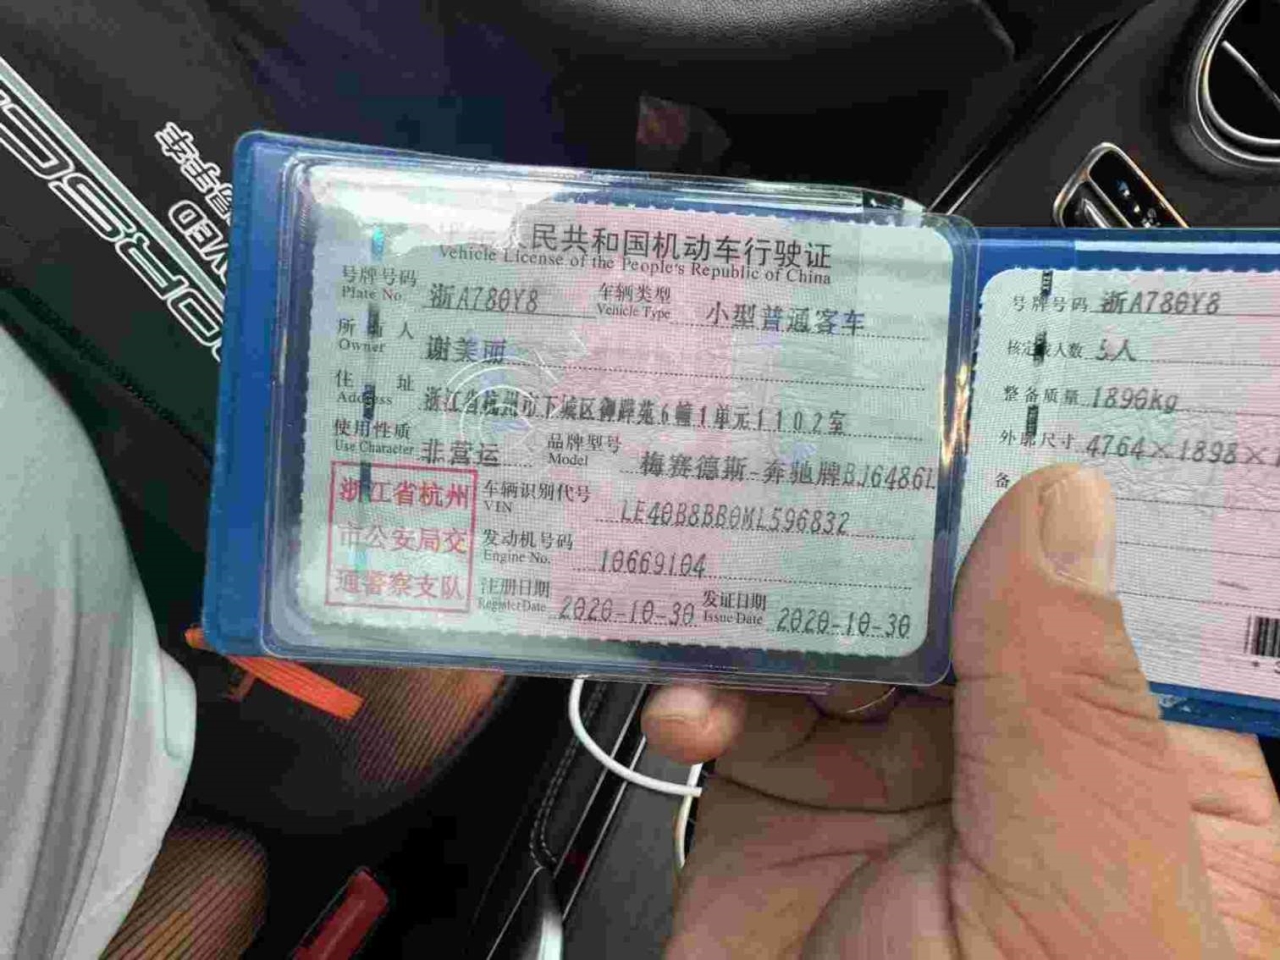 民共和国机动车行驶证
Vehicle License of the People's Republic of China
号牌号码 浙A780Y8 车辆类型 小型普通客车
Plate No. Vehicle Type
所有人 谢美丽
Owner
住址 浙江省杭州市下城区御跸苑6幢1单元1102室
Address
使用性质 非营运 品牌型号 梅赛德斯-奔驰牌BJ6486L
Use Character Model
浙江省杭州
市公安局交
通警察支队
车辆识别代号 LE40B8BB0ML596832
VIN
发动机号码 10669104
Engine No.
注册日期 2020-10-30 发证日期 2020-10-30
Register Date Issue Date
号牌号码 浙A780Y8
核定载人数 5人
整备质量 1890kg
外廓尺寸 4764×1898×1
备